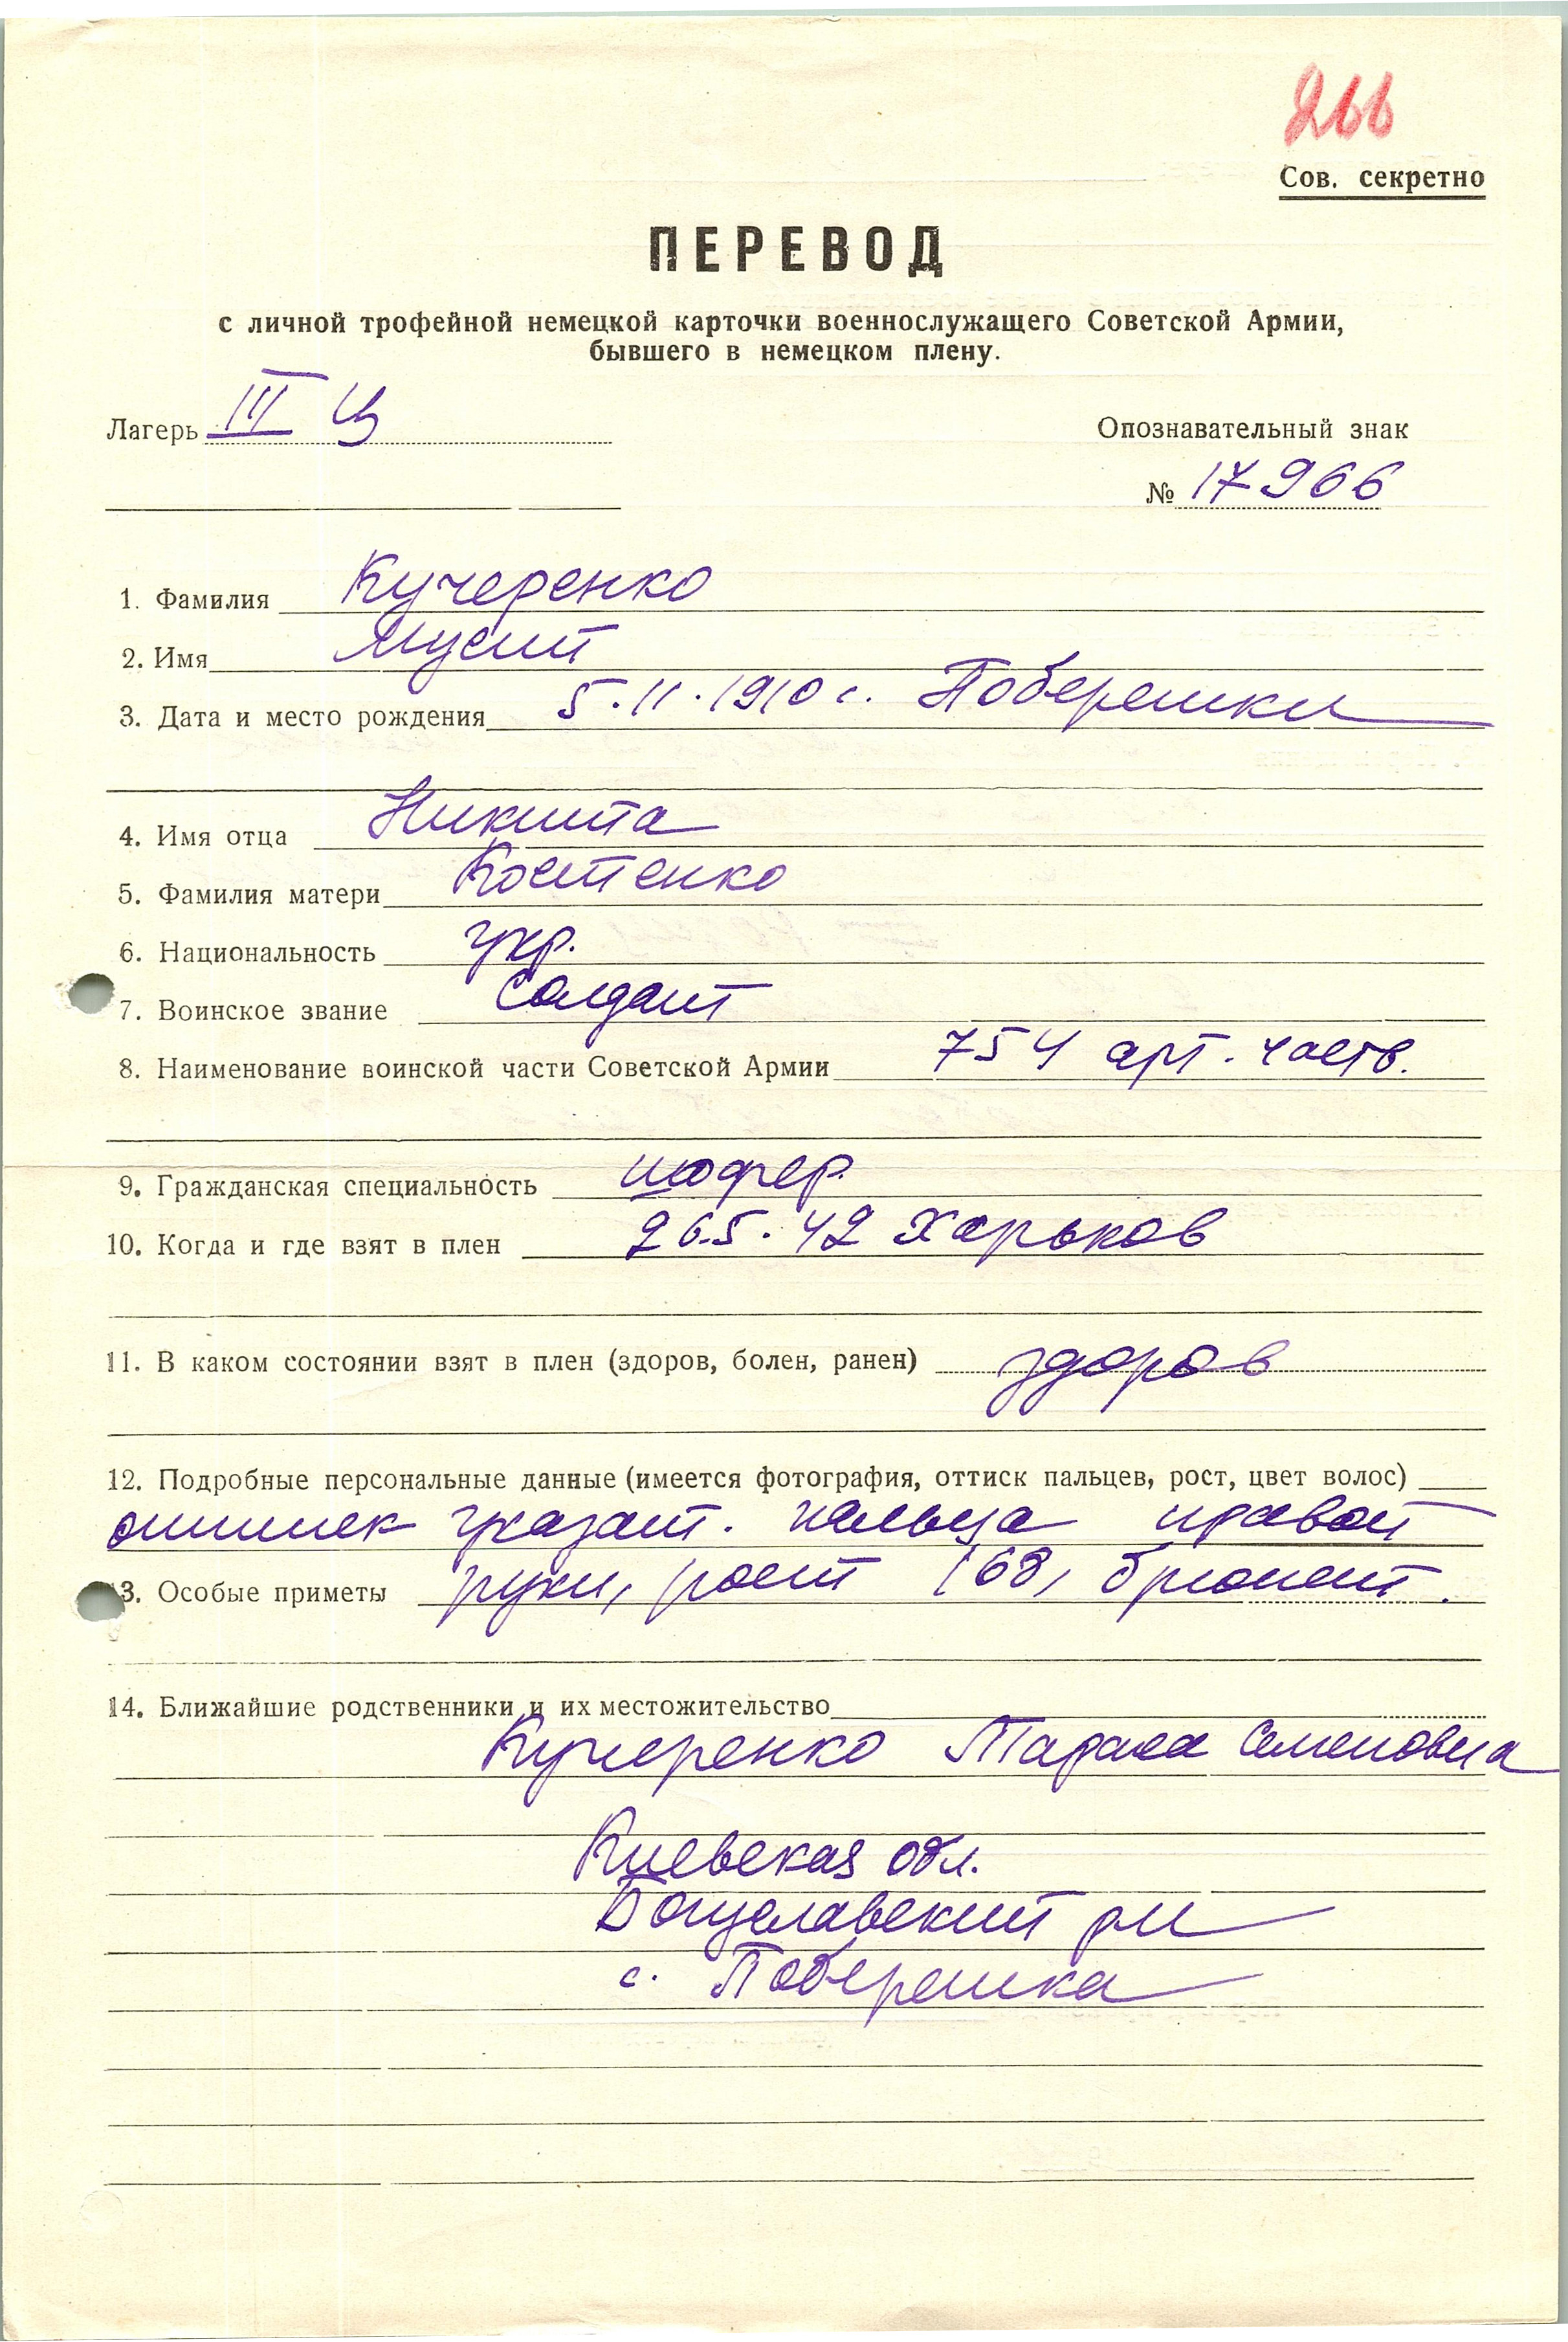 266
Сов. секретно
ПЕРЕВОД
с личной трофейной немецкой карточки военнослужащего Советской Армии,
бывшего в немецком плену.
Лагерь III Ц
Опознавательный знак
№ 17966
1. Фамилия Кучеренко
2. Имя Мусий
3. Дата и место рождения 5.11.1910 г. Поберешки
4. Имя отца Никита
5. Фамилия матери Костенко
6. Национальность укр.
7. Воинское звание солдат
8. Наименование воинской части Советской Армии 754 арт. часть.
9. Гражданская специальность шофер
10. Когда и где взят в плен 26.5.42 Харьков
11. В каком состоянии взят в плен (здоров, болен, ранен) здоров
12. Подробные персональные данные (имеется фотография, оттиск пальцев, рост, цвет волос)
указат. пальца правой
13. Особые приметы руки, рост 168, брюнет.
14. Ближайшие родственники и их местожительство
Кучеренко Семеновна
Киевская обл.
р-н
с. Поберешка